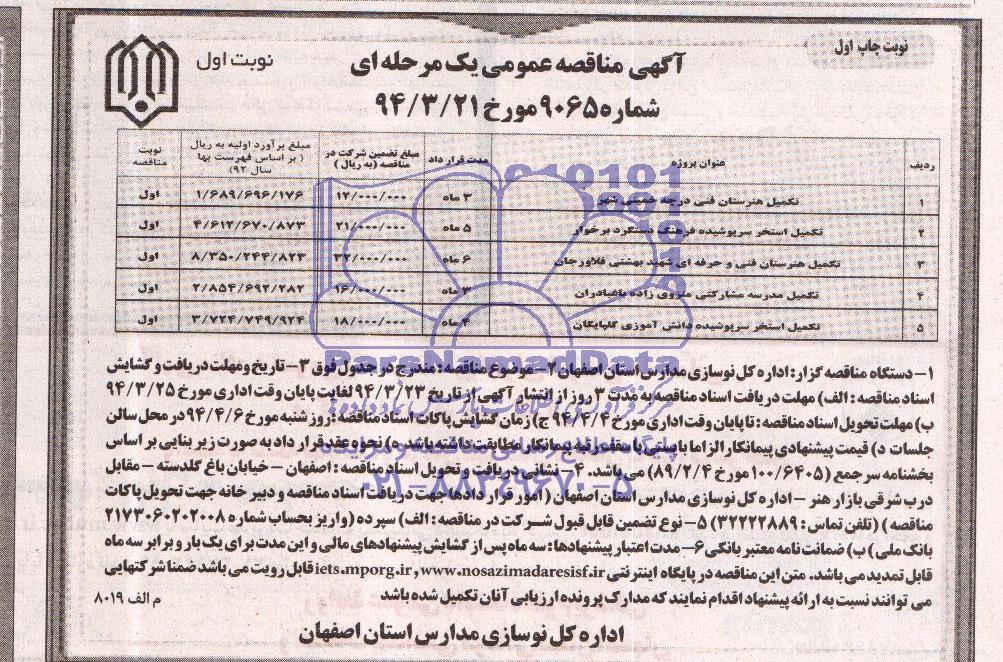 نوبت چاپ اول
آگهی مناقصه عمومی یک مرحله ای
نوبت اول
شماره ۹۰۶۵ مورخ ۹۴/۳/۲۱
ردیف عنوان پروژه مدت قرار داد مبلغ تضمین شرکت در مناقصه (به ریال) مبلغ برآورد اولیه به ریال (بر اساس فهرست بها سال ۹۲) نوبت مناقصه
۱ تکمیل هنرستان فنی درچه خمینی شهر ۳ ماه ۱۲/۰۰۰/۰۰۰ ۱/۶۸۹/۶۹۶/۱۷۶ اول
۲ تکمیل استخر سرپوشیده فرهنگ دستگرد برخوار ۵ ماه ۲۱/۰۰۰/۰۰۰ ۴/۶۱۲/۶۷۰/۸۷۳ اول
۳ تکمیل هنرستان فنی و حرفه ای شهید بهشتی فلاورجان ۶ ماه ۳۲/۰۰۰/۰۰۰ ۸/۳۵۰/۲۴۴/۸۲۳ اول
۴ تکمیل مدرسه مشارکتی منزوی زاده باغبادران ۳ ماه ۱۶/۰۰۰/۰۰۰ ۲/۸۵۴/۶۹۲/۲۸۲ اول
۵ تکمیل استخر سرپوشیده دانش آموزی گلپایگان ۴ ماه ۱۸/۰۰۰/۰۰۰ ۳/۷۲۴/۷۴۹/۹۲۴ اول
ParsNamadData
۱- دستگاه مناقصه گزار: اداره کل نوسازی مدارس استان اصفهان ۲- موضوع مناقصه: مندرج در جدول فوق ۳- تاریخ و مهلت دریافت و گشایش
اسناد مناقصه: الف) مهلت دریافت اسناد مناقصه به مدت ۳ روز از انتشار آگهی از تاریخ ۹۴/۳/۲۳ لغایت پایان وقت اداری مورخ ۹۴/۳/۲۵
ب) مهلت تحویل اسناد مناقصه: تا پایان وقت اداری مورخ ۹۴/۴/۴ ج) زمان گشایش پاکات اسناد مناقصه: روز شنبه مورخ ۹۴/۴/۶ در محل سالن
جلسات د) قیمت پیشنهادی پیمانکار الزاما بایستی با پیمانکار مطابقت داشته باشد. ه) نحوه عقد قرار داد به صورت زیر بنایی بر اساس
بخشنامه سر جمع (۱۰۰/۶۴۰۵ مورخ ۸۹/۲/۴) می باشد. ۴- نشانی دریافت و تحویل اسناد مناقصه: اصفهان - خیابان باغ گلدسته - مقابل
۰۲۱-۸۸۳۴۹۶۷۰-۵
درب شرقی بازار هنر - اداره کل نوسازی مدارس استان اصفهان (امور قرار دادها جهت دریافت اسناد مناقصه و دبیر خانه جهت تحویل پاکات
مناقصه) (تلفن تماس: ۳۲۲۲۲۸۸۹) ۵- نوع تضمین قابل قبول شرکت در مناقصه: الف) سپرده (واریز بحساب شماره ۲۱۷۳۰۶۰۲۰۲۰۰۸
بانک ملی) ب) ضمانت نامه معتبر بانکی ۶- مدت اعتبار پیشنهادها: سه ماه پس از گشایش پیشنهادهای مالی و این مدت برای یک بار و برابر سه ماه
قابل تمدید می باشد. متن این مناقصه در پایگاه اینترنتی iets.mporg.ir, www.nosazimadaresisf.ir قابل رویت می باشد ضمنا شرکتهایی
می توانند نسبت به ارائه پیشنهاد اقدام نمایند که مدارک پرونده ارزیابی آنان تکمیل شده باشد
م الف ۸۰۱۹
اداره کل نوسازی مدارس استان اصفهان